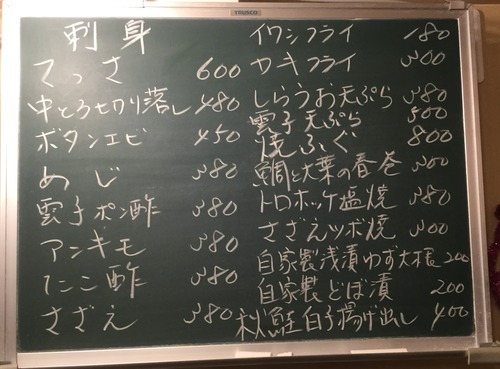 TRUSCO
刺身
てっさ 600
中とろ切り落し 480
ボタンエビ 450
めじ 380
雲子ポン酢 380
アンキモ 380
たこ酢 380
さざえ 380
イワシフライ 180
カキフライ 300
しらうお天ぷら 380
雲子天ぷら 500
焼ふぐ 800
鯛と大葉の春巻 300
トロホッケ塩焼 380
さざえツボ焼 300
自家製浅漬ゆず大根 200
自家製どぼ漬 200
秋鮭白子揚げ出し 400